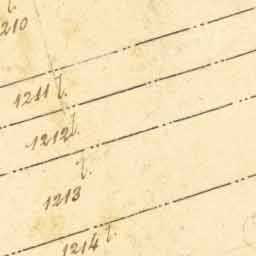 l.
1210
1211 l.
1212 l.
l.
1213
1214 l.